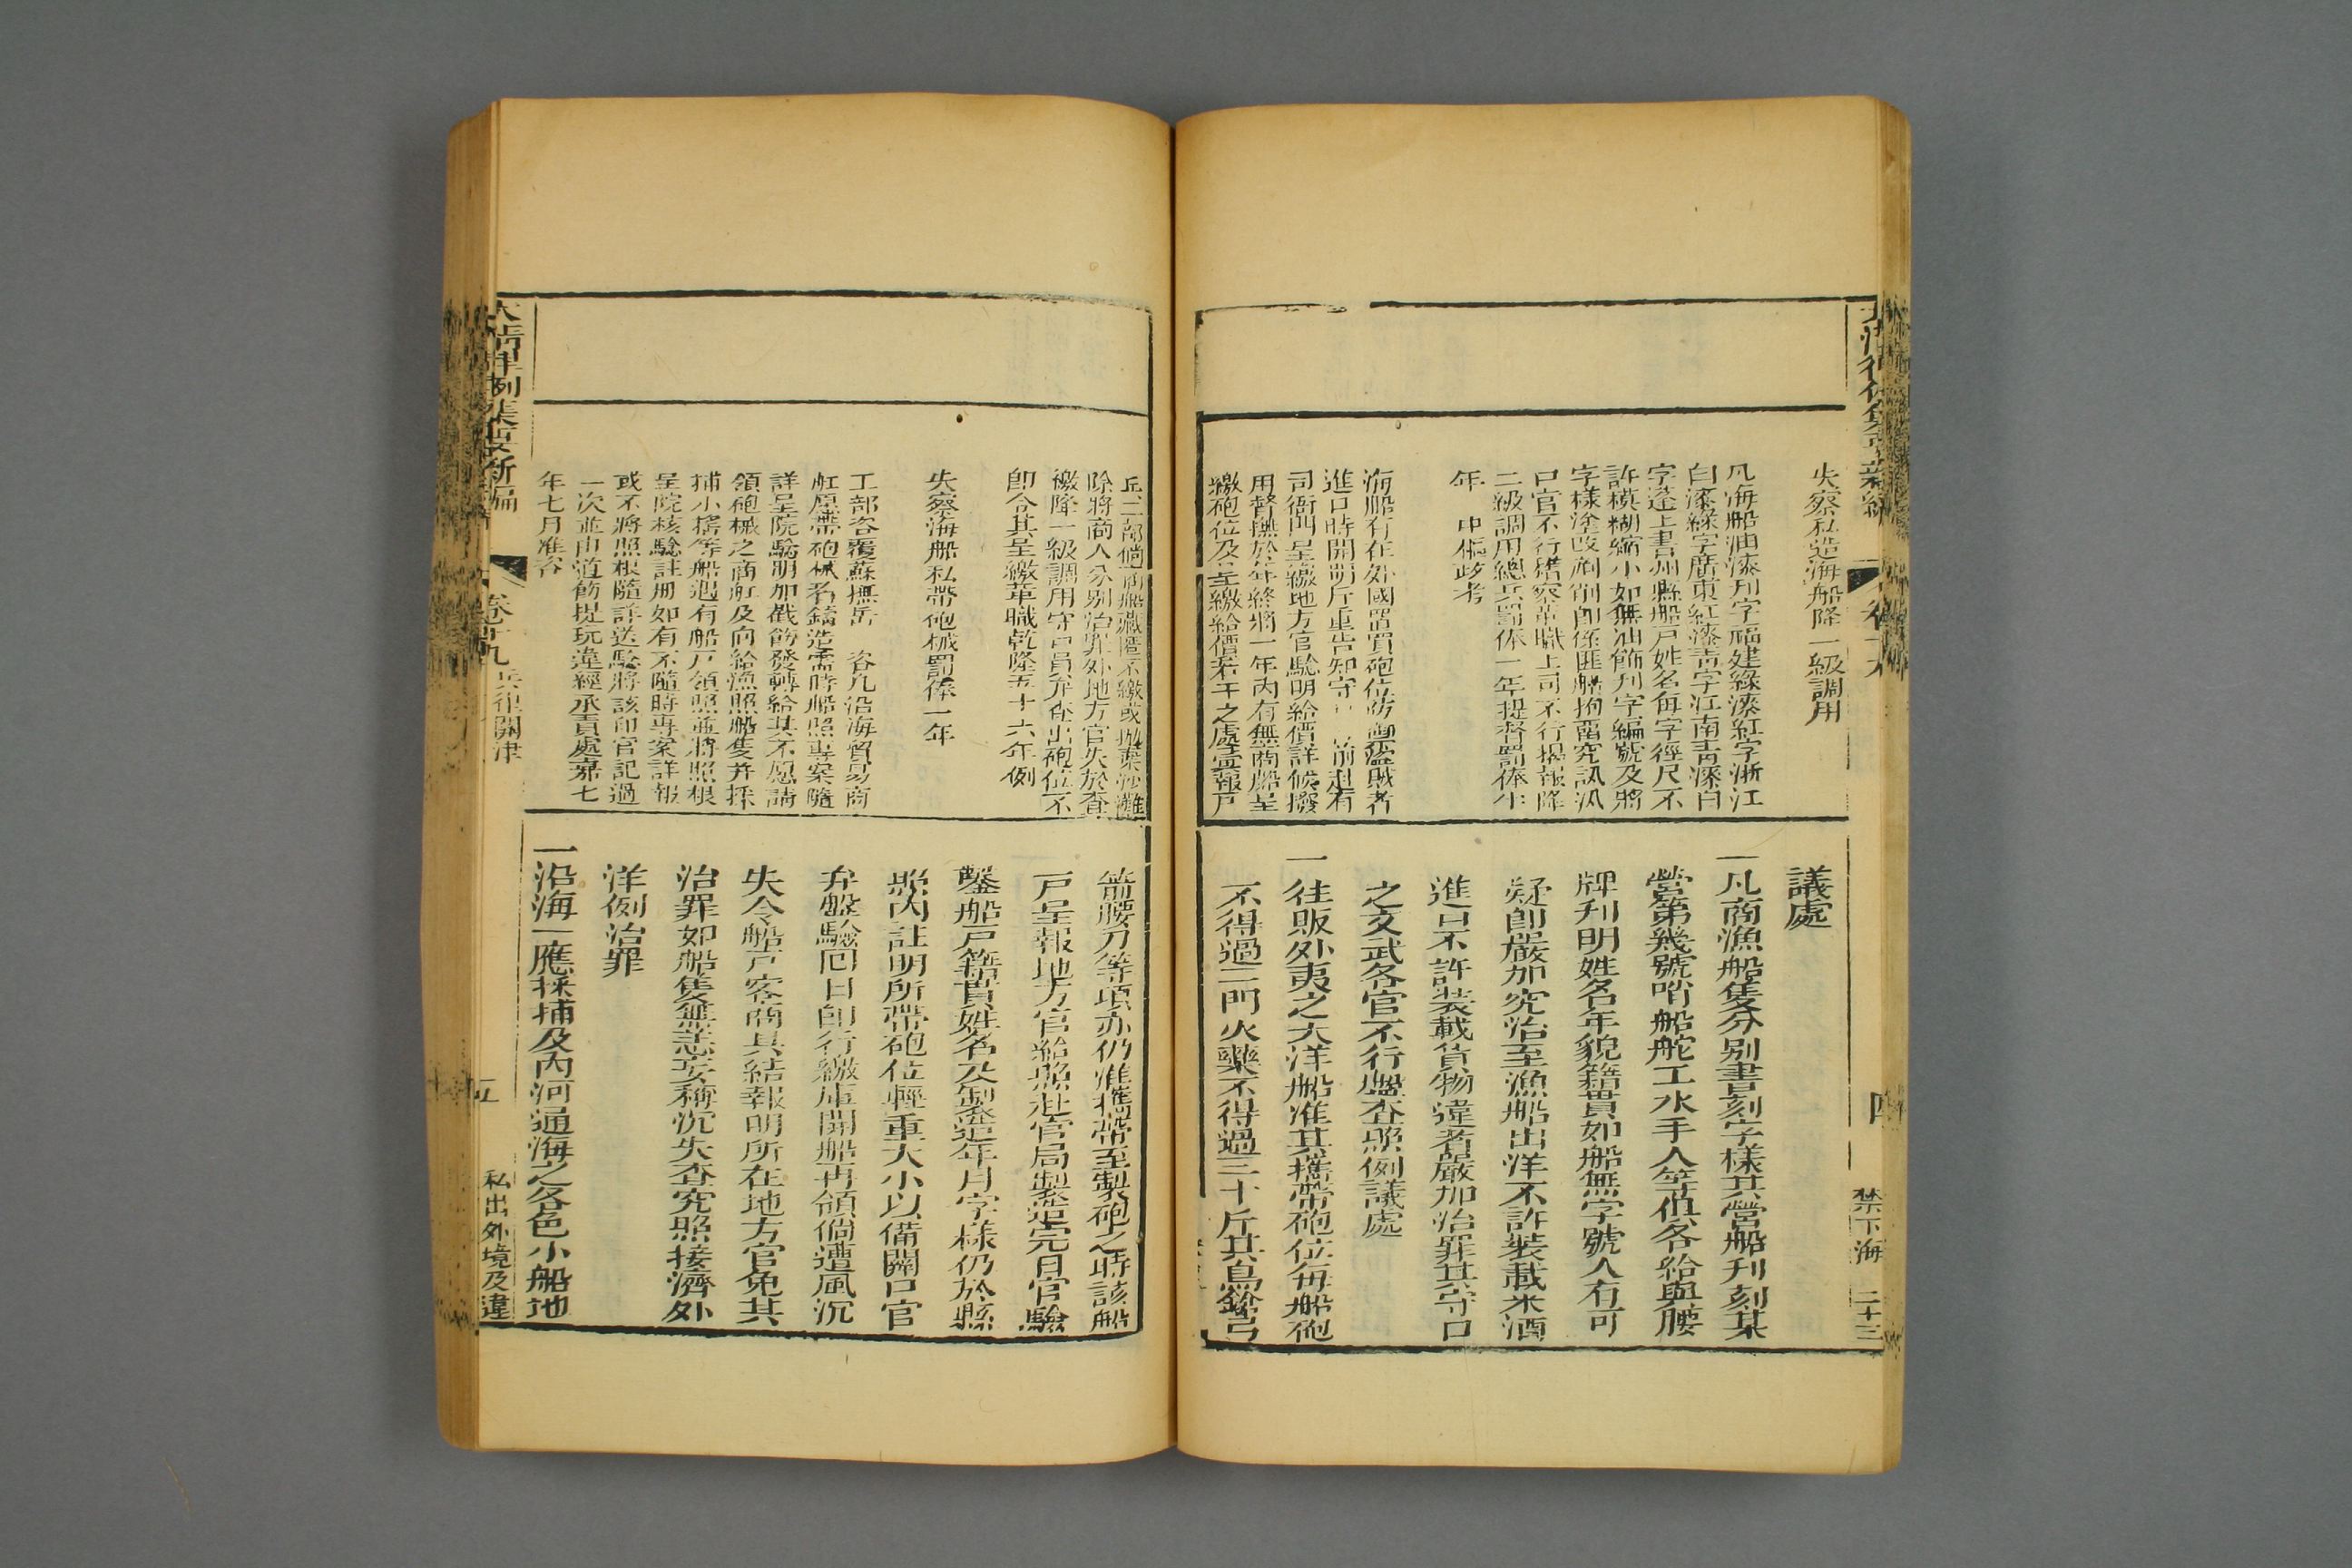 失察私造海船降一級調用
凡海船油漆刋字福建綠漆紅字浙江
白漆綠字廣東紅漆靑字江南靑漆白
字蓬上書州縣船戶姓名每字徑尺不
許模糊縮小如無油餙刋字編號及將
字樣塗改刷削卽係匪船拘畱究訊汛
口官不行稽察革職上司不行揭報降
二級調用總兵罰俸一年提督罰俸六
年　中樞政考
海船有在外國置買砲位防禦盜賊者
進口時開明斤重告知守口　前赴有
司衙門呈繳地方官驗明給價詳候撥
用督撫於年終將一年內有無商船呈
繳砲位及呈繳給價若干之處宣報戶
議處
一凡商漁船隻分別書刻字樣其營船刋刻某
營第幾號哨船舵工水手人等俱各給與腰
牌刋明姓名年貌籍貫如船無字號人有可
疑卽嚴加究治至漁船出洋不許裝載米酒
進口不許裝載貨物違者嚴加治罪其守口
之文武各官不行盤查照例議處
一往販外夷之大洋船准其攜帶砲位每船砲
不得過二門火藥不得過三十斤其鳥鎗弓
禁下海　二十三
兵二部倘商船藏匿不繳或拋棄沙灘
除將商人分別治罪外地方官失於查
繳降一級調用守口員弁查出砲位不
卽令其呈繳革職乾隆五十六年例
失察海船私帶砲械罰俸一年
工部咨覆蘇撫岳　咨凡沿海貿易商
船原帶砲械若鑄造需時船照專案隨
詳呈院驗明加戳飭發轉給其不愿請
領砲械之商船及向給漁照船隻并採
捕小搖等船遇有船戶領照並將照根
呈院核驗註册如有不隨時專案詳報
或不將照根隨詳送驗將該印官記過
一次並由道飭提玩違經承責處嘉七
年七月准咨
箭腰刀等項亦仍准攜帶至製砲之時該船
戶呈報地方官給照赴官局製造完日官驗
鏨船戶籍貫姓名及製造年月字樣仍於縣
照內註明所帶砲位輕重大小以備關口官
弁盤驗回日卽行繳庫開船再領倘遭風沉
失令船戶客商具結報明所在地方官免其
治罪如船隻無恙妄稱沉失查究照接濟外
洋例治罪
一沿海一應採捕及內河通海之各色小船地
大清律例集要新編
卷十九　兵律關津
五
私出外境及違